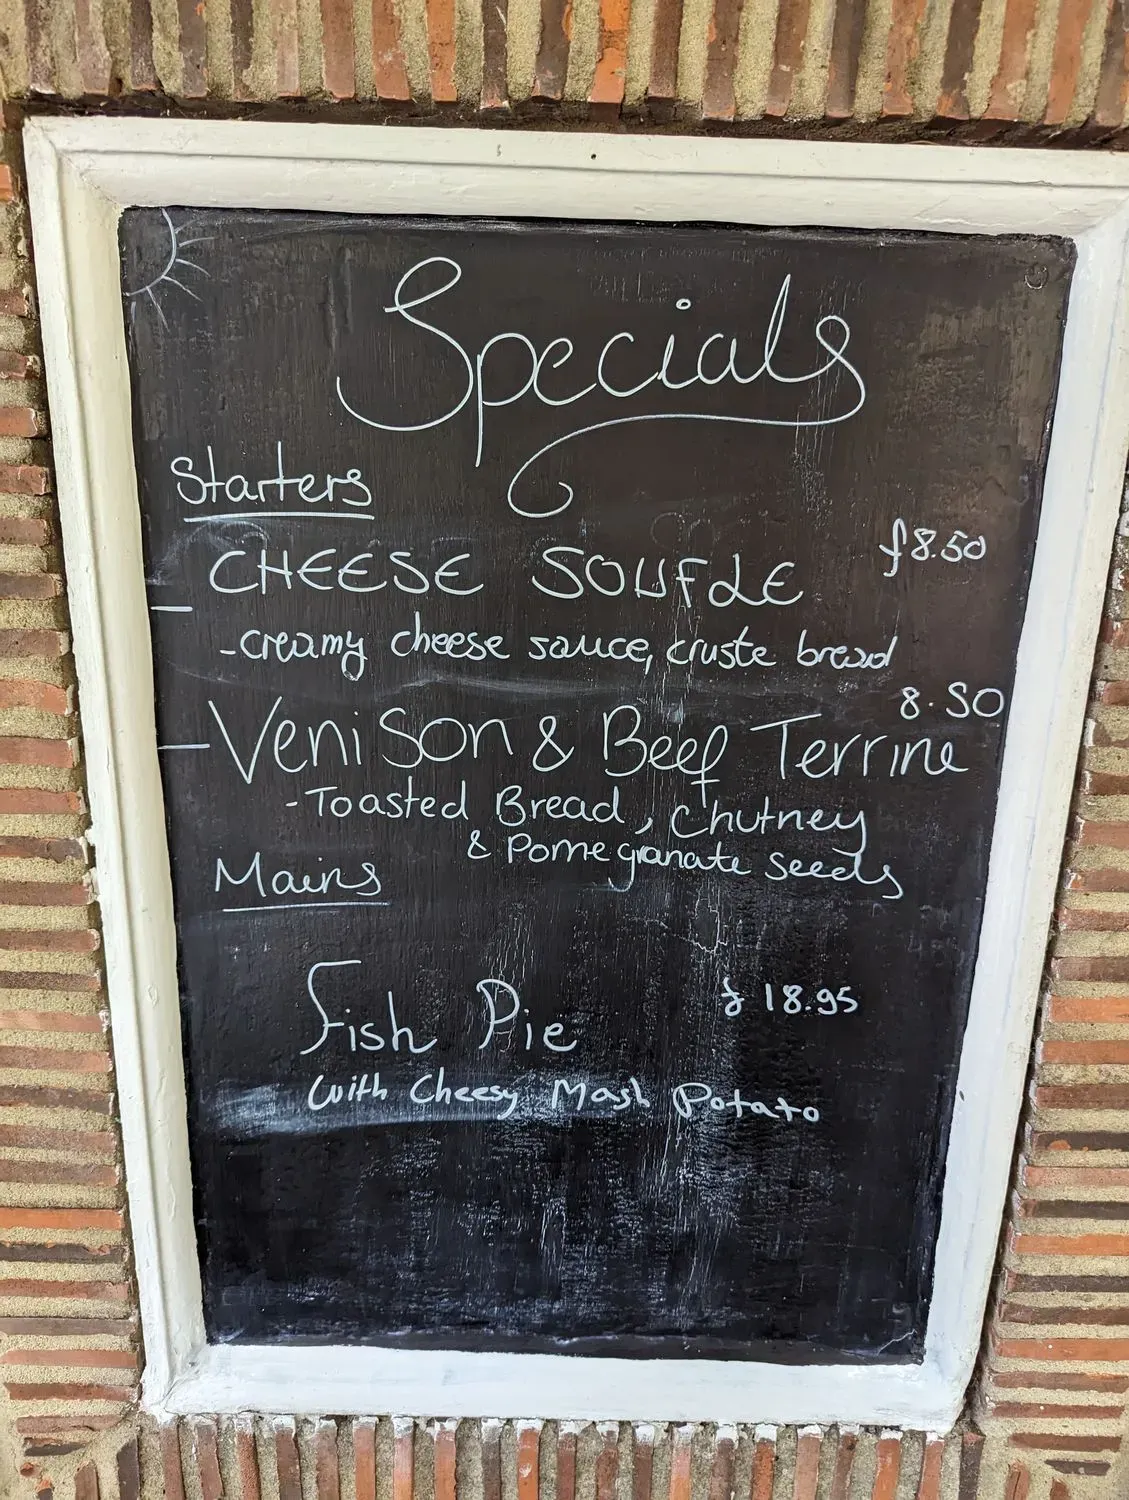 Specials
Starters
CHEESE SOUFLE £8.50
- creamy cheese sauce, cruste bread
8.50
- Venison & Beef Terrine
- Toasted Bread, Chutney
& Pomegranate seeds
Mains
Fish Pie £18.95
with Cheesy Mash Potato